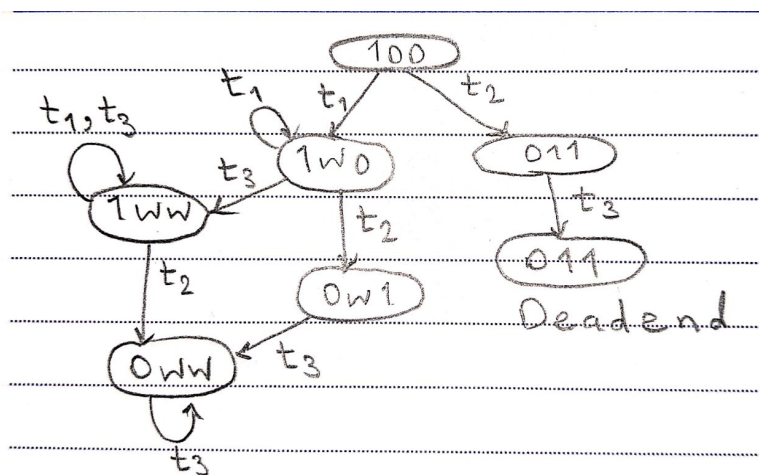 100
t1 t1 t2
t1, t3
1w0 011
t3
1ww t3
t2
t2 0w1 011
Deadend
0ww t3
t3